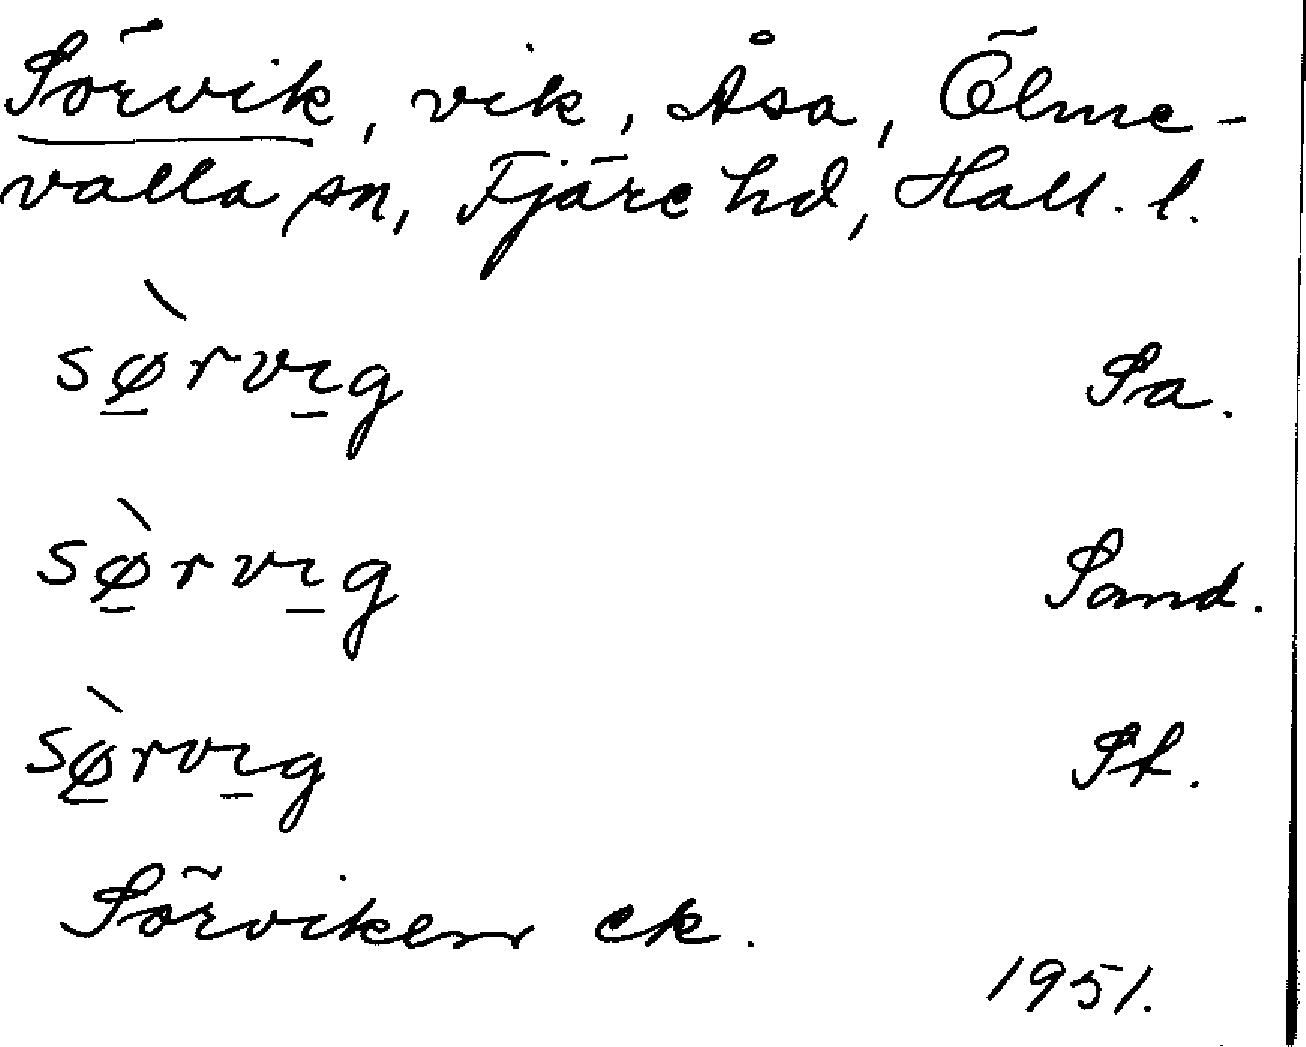 Sörvik, vik, Åsa, Ölme-
valla sn, Fjäre hd, Hall. l.
sø̀rvıg Sa.
sø̀rvıg Sand.
sø̀rvıg St.
Sörviken ek.
1951.